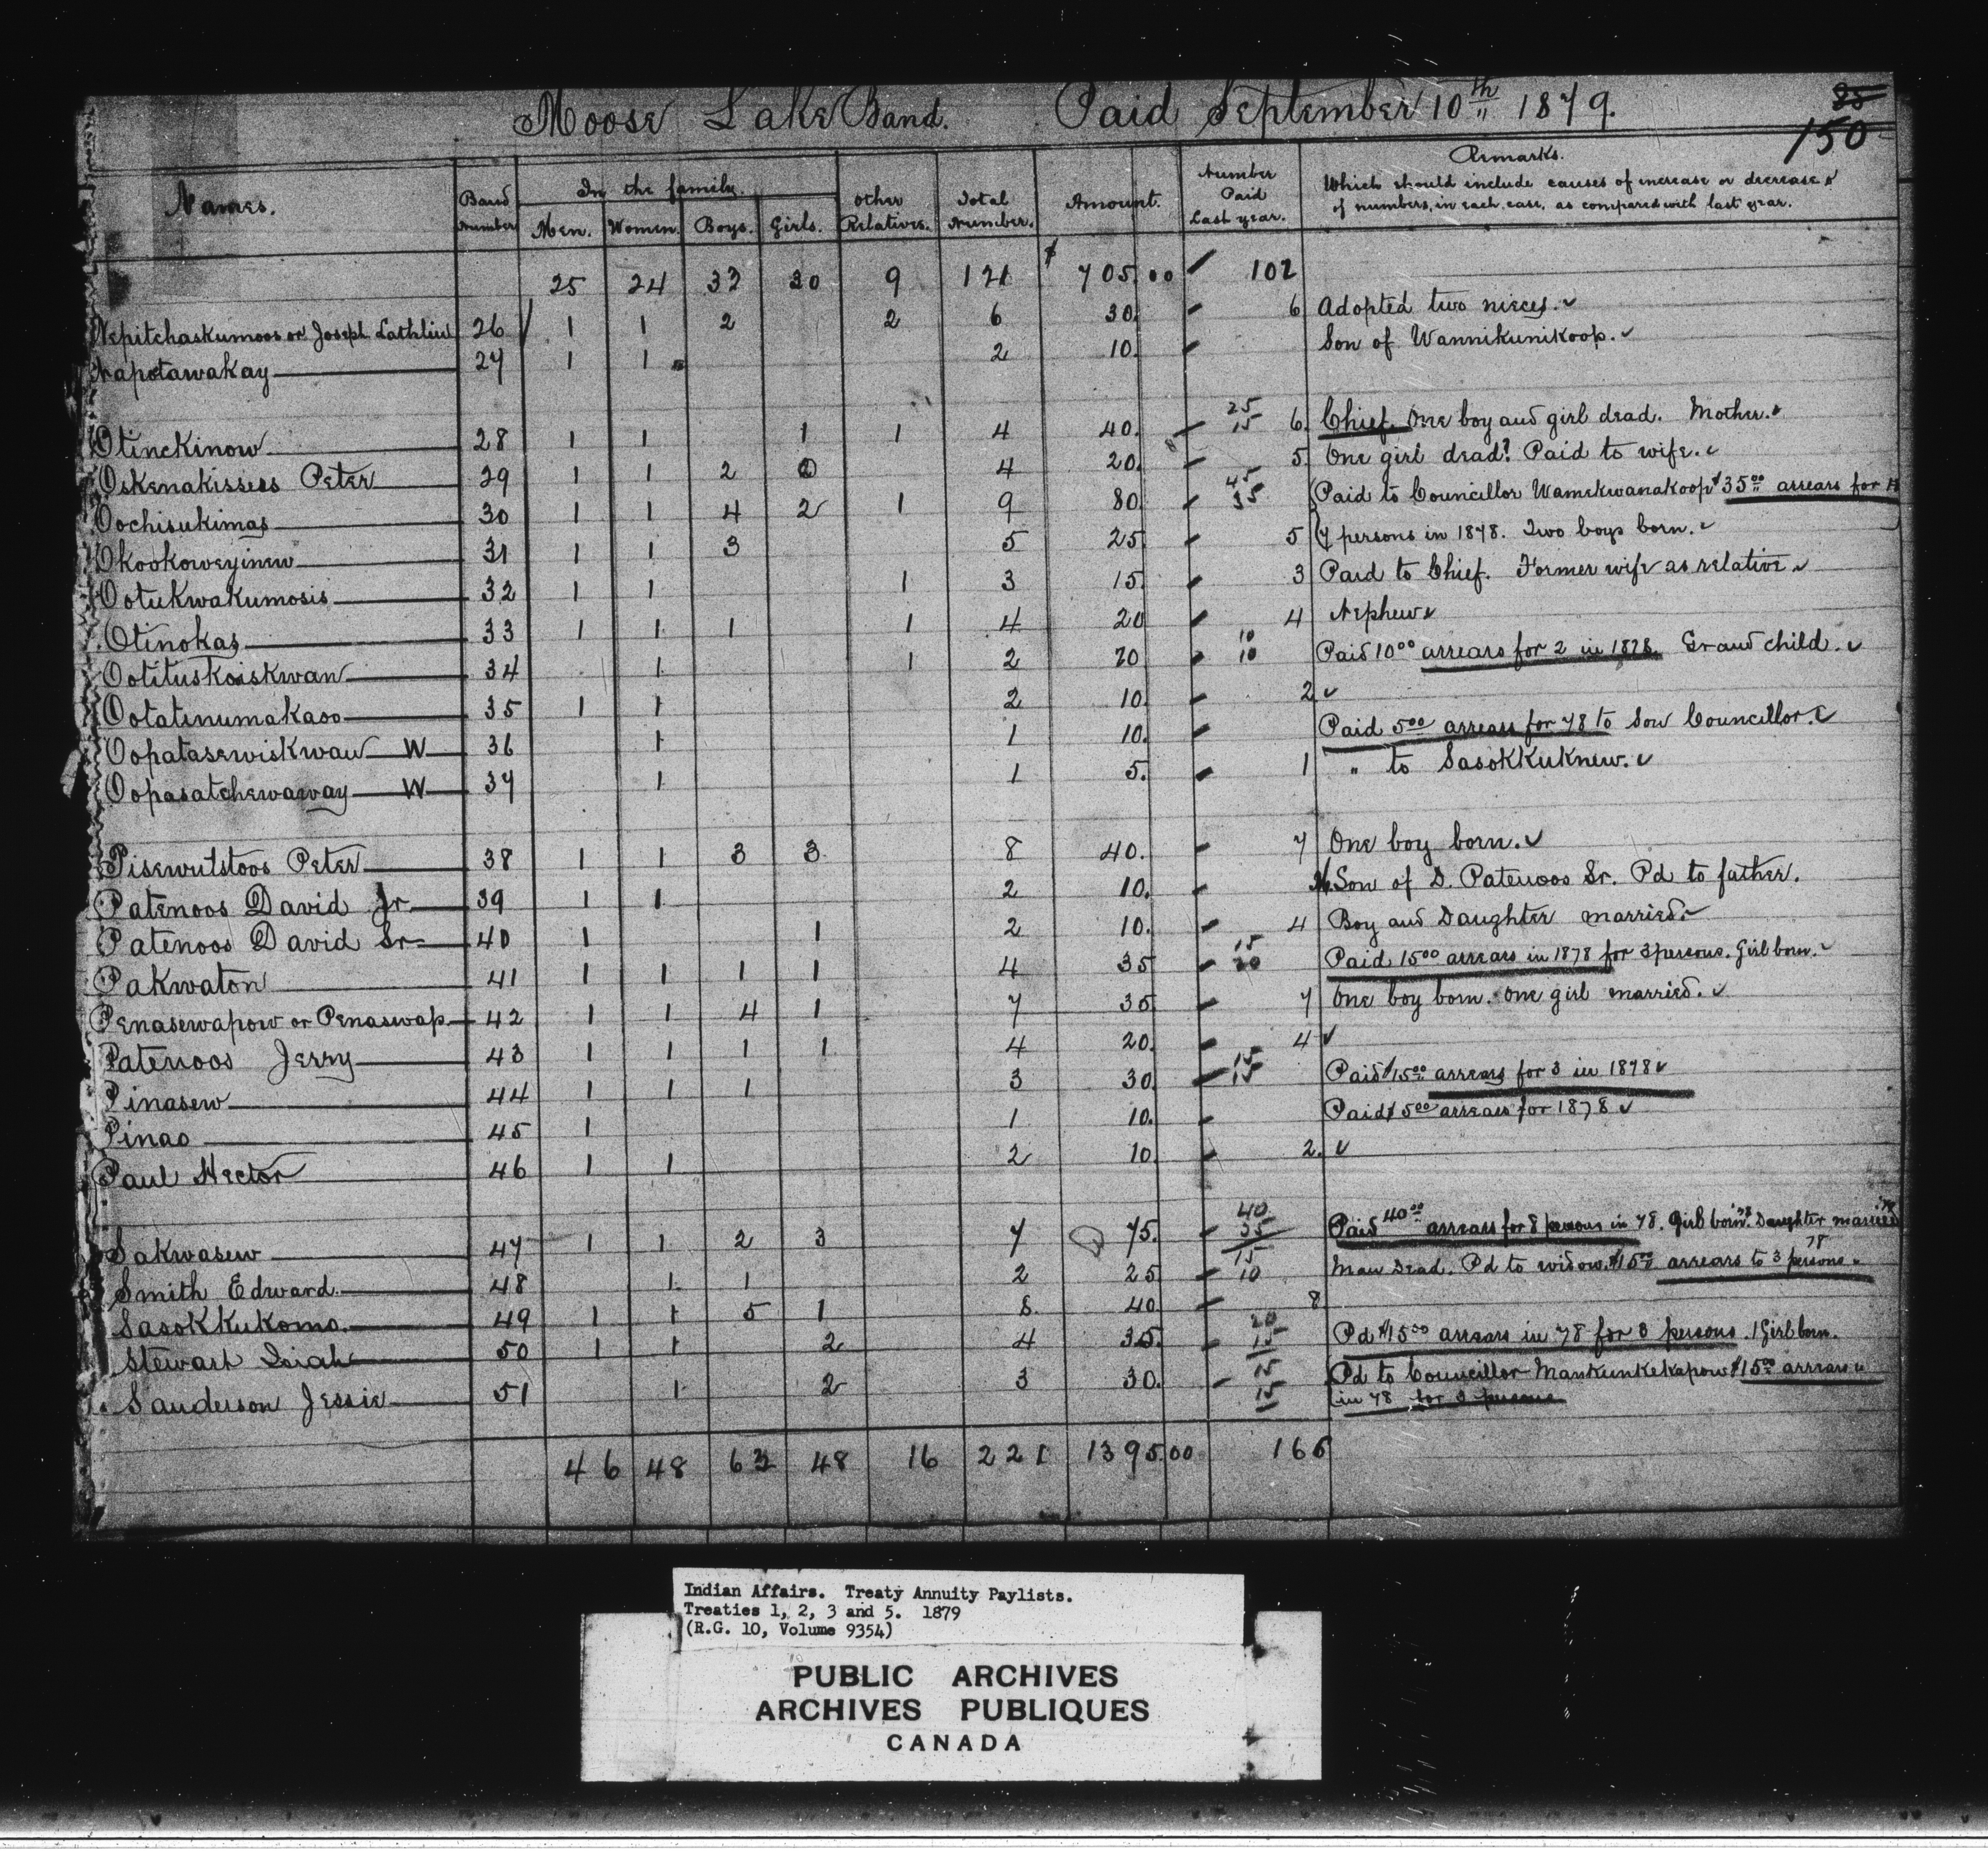 Moose Lake Band. Paid September 10th 1879.
25
150
Names. Band Number In the family. Men. Women. Boys. Girls. Other Relatives. Total Number. Amount. Number Paid Last year. Remarks.
Which should include causes of increase or decrease
of numbers, in each case, as compared with last year.
25 24 33 30 9 121 $705.00 102
Nepitchaskumoos or Joseph Lathlin 26 1 1 2 2 6 30. 6 Adopted two nieces.
Napotawakay 27 1 1 2 10. Son of Wannikunikoop.
Otinckinow 28 1 1 1 1 4 40. 25 15 6 Chief. One boy and girl dead. Mother.
Oskenakissees Peter 29 1 1 2 4 20. 5 One girl dead? Paid to wife.
Oochisukimas 30 1 1 4 2 1 9 80. 45 35 Paid to Councillor Wamekwanakoop $35.00 arrears for
7 persons in 1878. Two boys born.
Okookoweyinew 31 1 1 3 5 25. 5
Ootukwakumosis 32 1 1 1 3 15. 3 Paid to Chief. Former wife as relative
Otinokas 33 1 1 1 1 4 20 4 Nephew
Ootituskoiskwan 34 1 1 2 20 10 10 Paid 10.00 arrears for 2 in 1878. Grand child.
Ootatinumakaso 35 1 1 2 10. 2
Oopatasewiskwan W 36 1 1 10. Paid 5.00 arrears for 78 to Son Councillor.
Oopasatchewaway W 37 1 1 5. 1 " to Sasokkuknew.
Pisewutstoos Peter 38 1 1 3 3 8 40. 7 One boy born.
Patenoos David Jr. 39 1 1 2 10. Son of D. Patenoos Sr. Pd to father.
Patenoos David Sr 40 1 1 2 10. 4 Boy and Daughter married
Pakwaton 41 1 1 1 1 4 35 15 20 Paid 15.00 arrears in 1878 for 3 persons. Girl born.
Penasewapow or Penaswap 42 1 1 4 1 7 35 7 One boy born. One girl married.
Patenoos Jerry 43 1 1 1 1 4 20. 4
Pinasew 44 1 1 1 3 30 15 15 Paid $15.00 arrears for 3 in 1878
Pinao 45 1 1 10. Paid $5.00 arrears for 1878
Paul Hector 46 1 1 2 10 2.
Sakwasew 47 1 1 2 3 7 75. 40 35 Paid 40.00 arrears for 8 persons in 78. Girl born. Daughter married
Smith Edward 48 1 1 2 25 15 10 Man Dead. Pd to widow $15.00 arrears to 3 persons 78
Sasokkukomo 49 1 1 5 1 8 40 8
Stewart Isiah 50 1 1 2 4 35. 20 15 Pd $15.00 arrears in 78 for 3 persons. 1 Girl born.
Sanderson Jessie 51 1 2 3 30. 15 15 Pd to Councillor Mankunkekapow $15.00 arrears
in 78 for 3 persons
46 48 63 48 16 221 1395.00 166
Indian Affairs. Treaty Annuity Paylists.
Treaties 1, 2, 3 and 5. 1879
(R.G. 10, Volume 9354)
PUBLIC ARCHIVES
ARCHIVES PUBLIQUES
CANADA